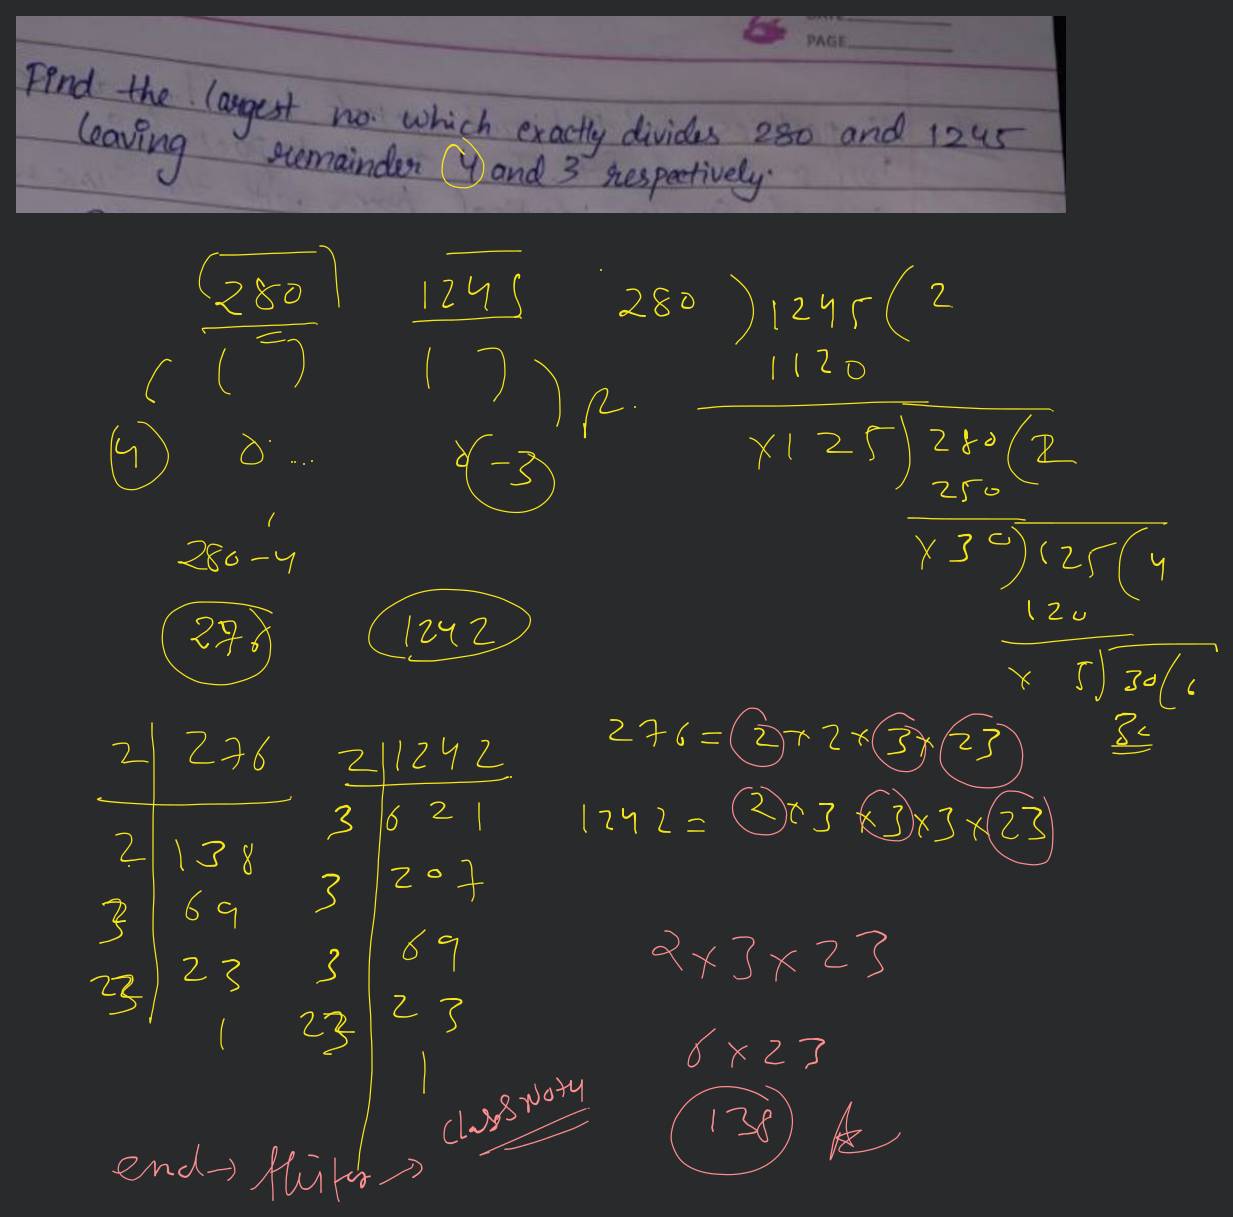 DATE
PAGE
Find the largest no. which exactly divides 280 and 1245
leaving remainder 4 and 3 respectively.
280
1245
( )
( )
R.
4
0
0
-3
280-4
276
1242
280 ) 1245 ( 2
1120
×125 ) 280 ( 2
250
×30 ) 125 ( 4
120
× 5 ) 30 ( 6
30
2 | 276
2 | 138
3 | 69
23 | 23
1
2 | 1242
3 | 621
3 | 207
3 | 69
23 | 23
1
276 = 2 × 2 × 3 × 23
1242 = 2 × 3 × 3 × 3 × 23
2 × 3 × 23
6 × 23
138
end →
→ Class Noty